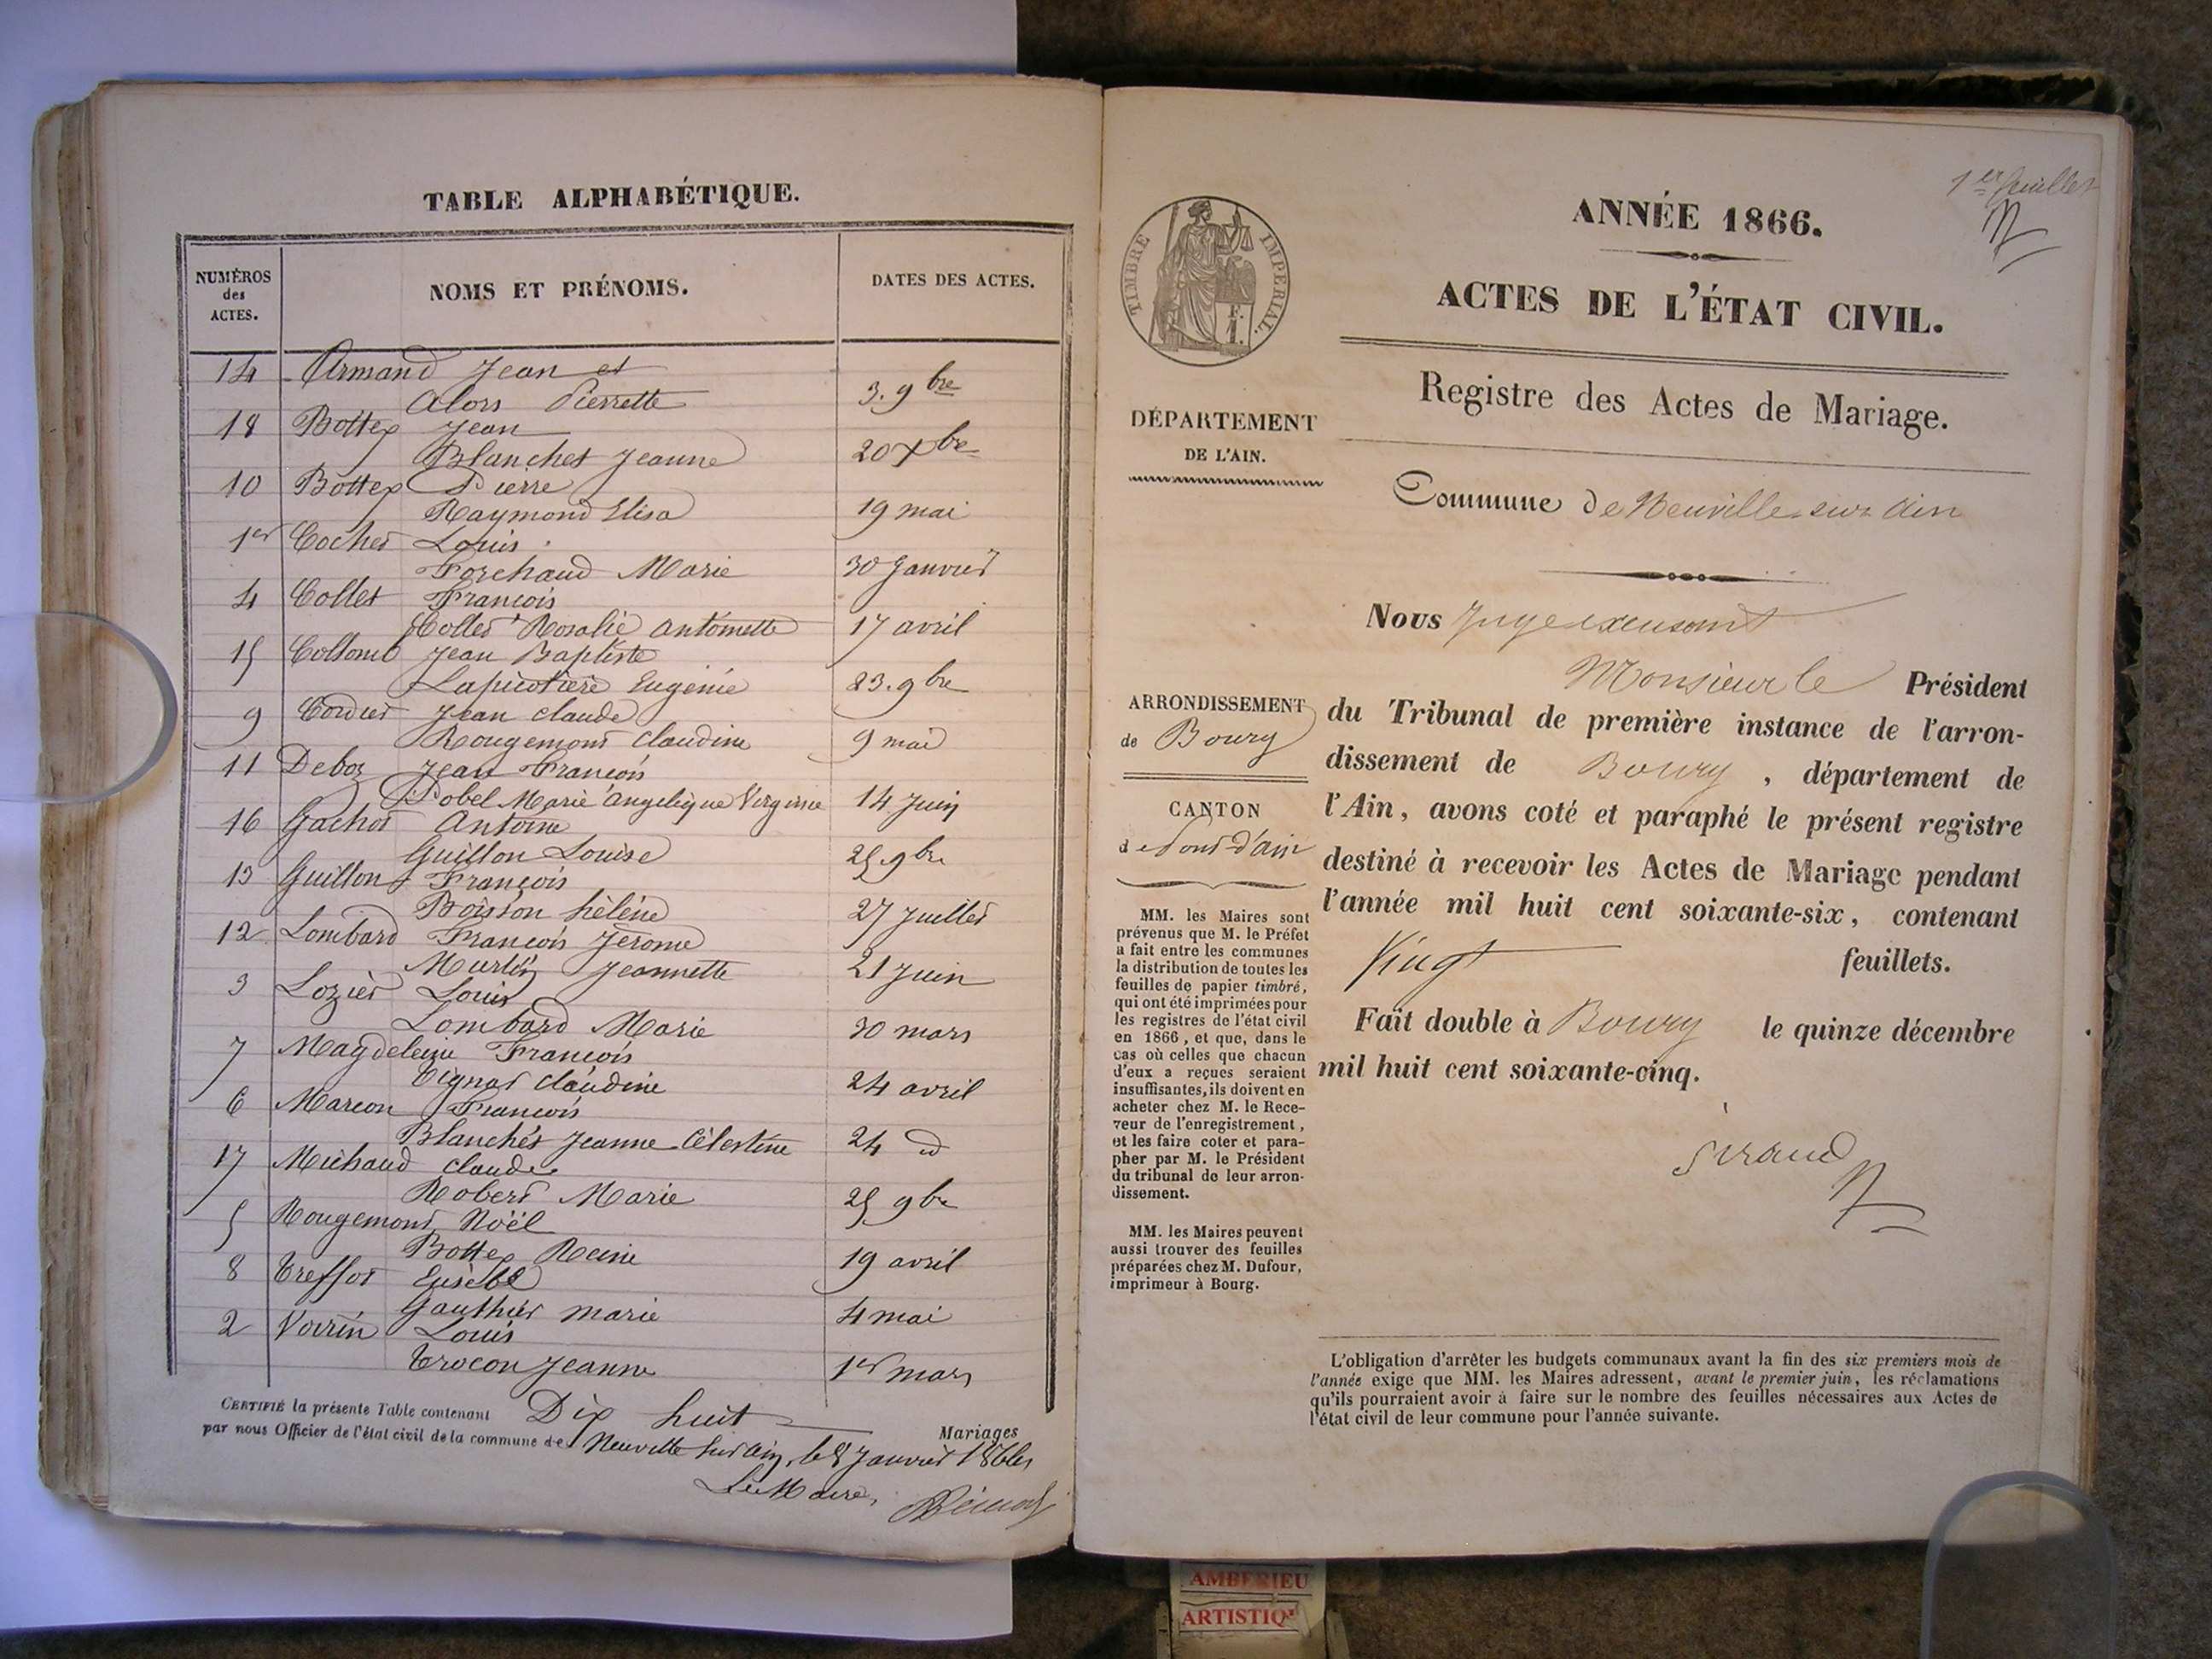 TABLE ALPHABÉTIQUE.
NUMÉROS des ACTES.
NOMS ET PRÉNOMS.
DATES DES ACTES.
14 Armand Jean et
Alors Pierrette 3. 9bre
18 Bottex Jean
Blanchet Jeanne 20 Xbre
10 Bottex Pierre
Raymond Elisa 19 mai
1er Cochet Louis
Forchaud Marie 30 Janvier
4 Collet François
Collet Rosalie antoinette 17 avril
15 Collomb Jean Baptiste
Lapicotière Eugénie 23. 9bre
9 Cordier Jean claude
Rougemont Claudine 9 mai
11 Deboz Jean François
Pobel Marie angelique Virginie 14 Juin
16 Gachot Antoine
Guillon Louise 25 9bre
13 Guillon François
Boisson hélène 27 Juillet
12 Lombard François Jérome
Murtin Jeannette 21 Juin
3 Lozier Louis
Lombard Marie 30 mars
7 Magdeleine François
Tignat claudine 24 avril
6 Marcon François
Blanchet Jeanne Célestine 24 d
17 Michaud claude
Robert Marie 25 9bre
5 Rougemont Noël
Bottex Reine 19 avril
8 Treffot Eusèbe
Gauthier marie 4 mai
2 Voirin Louis
Trocon Jeanne 1er mars
CERTIFIÉ la présente Table contenant Dix huit Mariages
par nous Officier de l'état civil de la commune de Neuville sur Ain, le 8 Janvier 1866
Le Maire,
1er feuillet
TIMBRE IMPERIAL.
F.
1.
ANNÉE 1866.
ACTES DE L'ÉTAT CIVIL.
Registre des Actes de Mariage.
Commune de Neuville sur Ain
DÉPARTEMENT
DE L'AIN.
ARRONDISSEMENT
de Bourg
CANTON
de Pont-d'ain
MM. les Maires sont
prévenus que M. le Préfet
a fait entre les communes
la distribution de toutes les
feuilles de papier timbré,
qui ont été imprimées pour
les registres de l'état civil
en 1866, et que, dans le
cas où celles que chacun
d'eux a reçues seraient
insuffisantes, ils doivent en
acheter chez M. le Rece-
veur de l'enregistrement,
et les faire coter et para-
pher par M. le Président
du tribunal de leur arron-
dissement.
MM. les Maires peuvent
aussi trouver des feuilles
préparées chez M. Dufour,
imprimeur à Bourg.
Nous Juge excusant
Monsieur le Président
du Tribunal de première instance de l'arron-
dissement de Bourg, département de
l'Ain, avons coté et paraphé le présent registre
destiné à recevoir les Actes de Mariage pendant
l'année mil huit cent soixante-six, contenant
Vingt feuillets.
Fait double à Bourg le quinze décembre
mil huit cent soixante-cinq.
Sirand
L'obligation d'arrêter les budgets communaux avant la fin des six premiers mois de
l'année exige que MM. les Maires adressent, avant le premier juin, les réclamations
qu'ils pourraient avoir à faire sur le nombre des feuilles nécessaires aux Actes de
l'état civil de leur commune pour l'année suivante.
AMBERIEU
ARTISTIQ